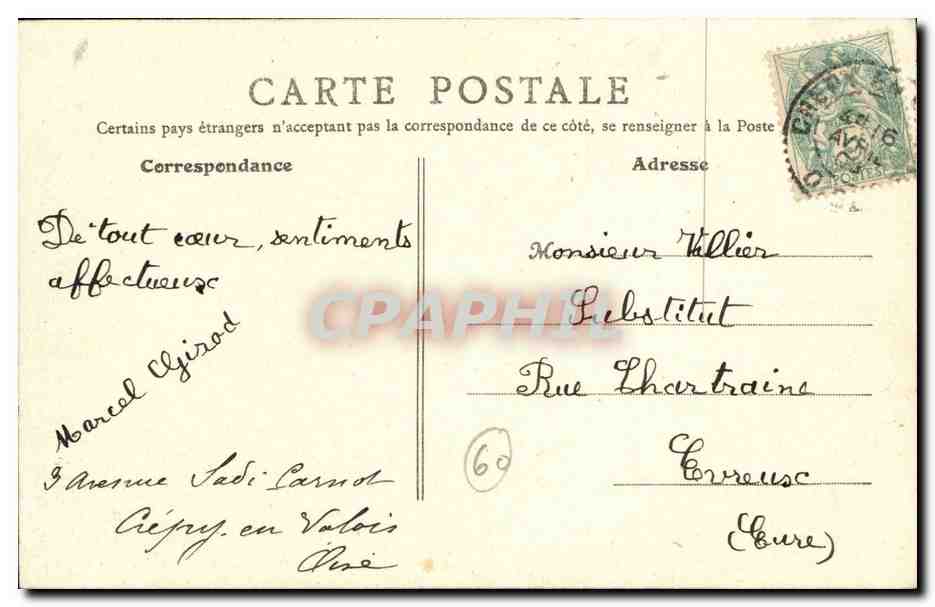 CARTE POSTALE
Certains pays étrangers n'acceptant pas la correspondance de ce côté, se renseigner à la Poste
Correspondance
De tout cœur, sentiments
affectueux
Marcel Girod
3 avenue Sadi Carnot
Crépy-en Valois
Oise
Adresse
Monsieur Villier
Substitut
Rue Chartraine
Evreux
(Eure)
60
16
POSTES
CPAPHIL